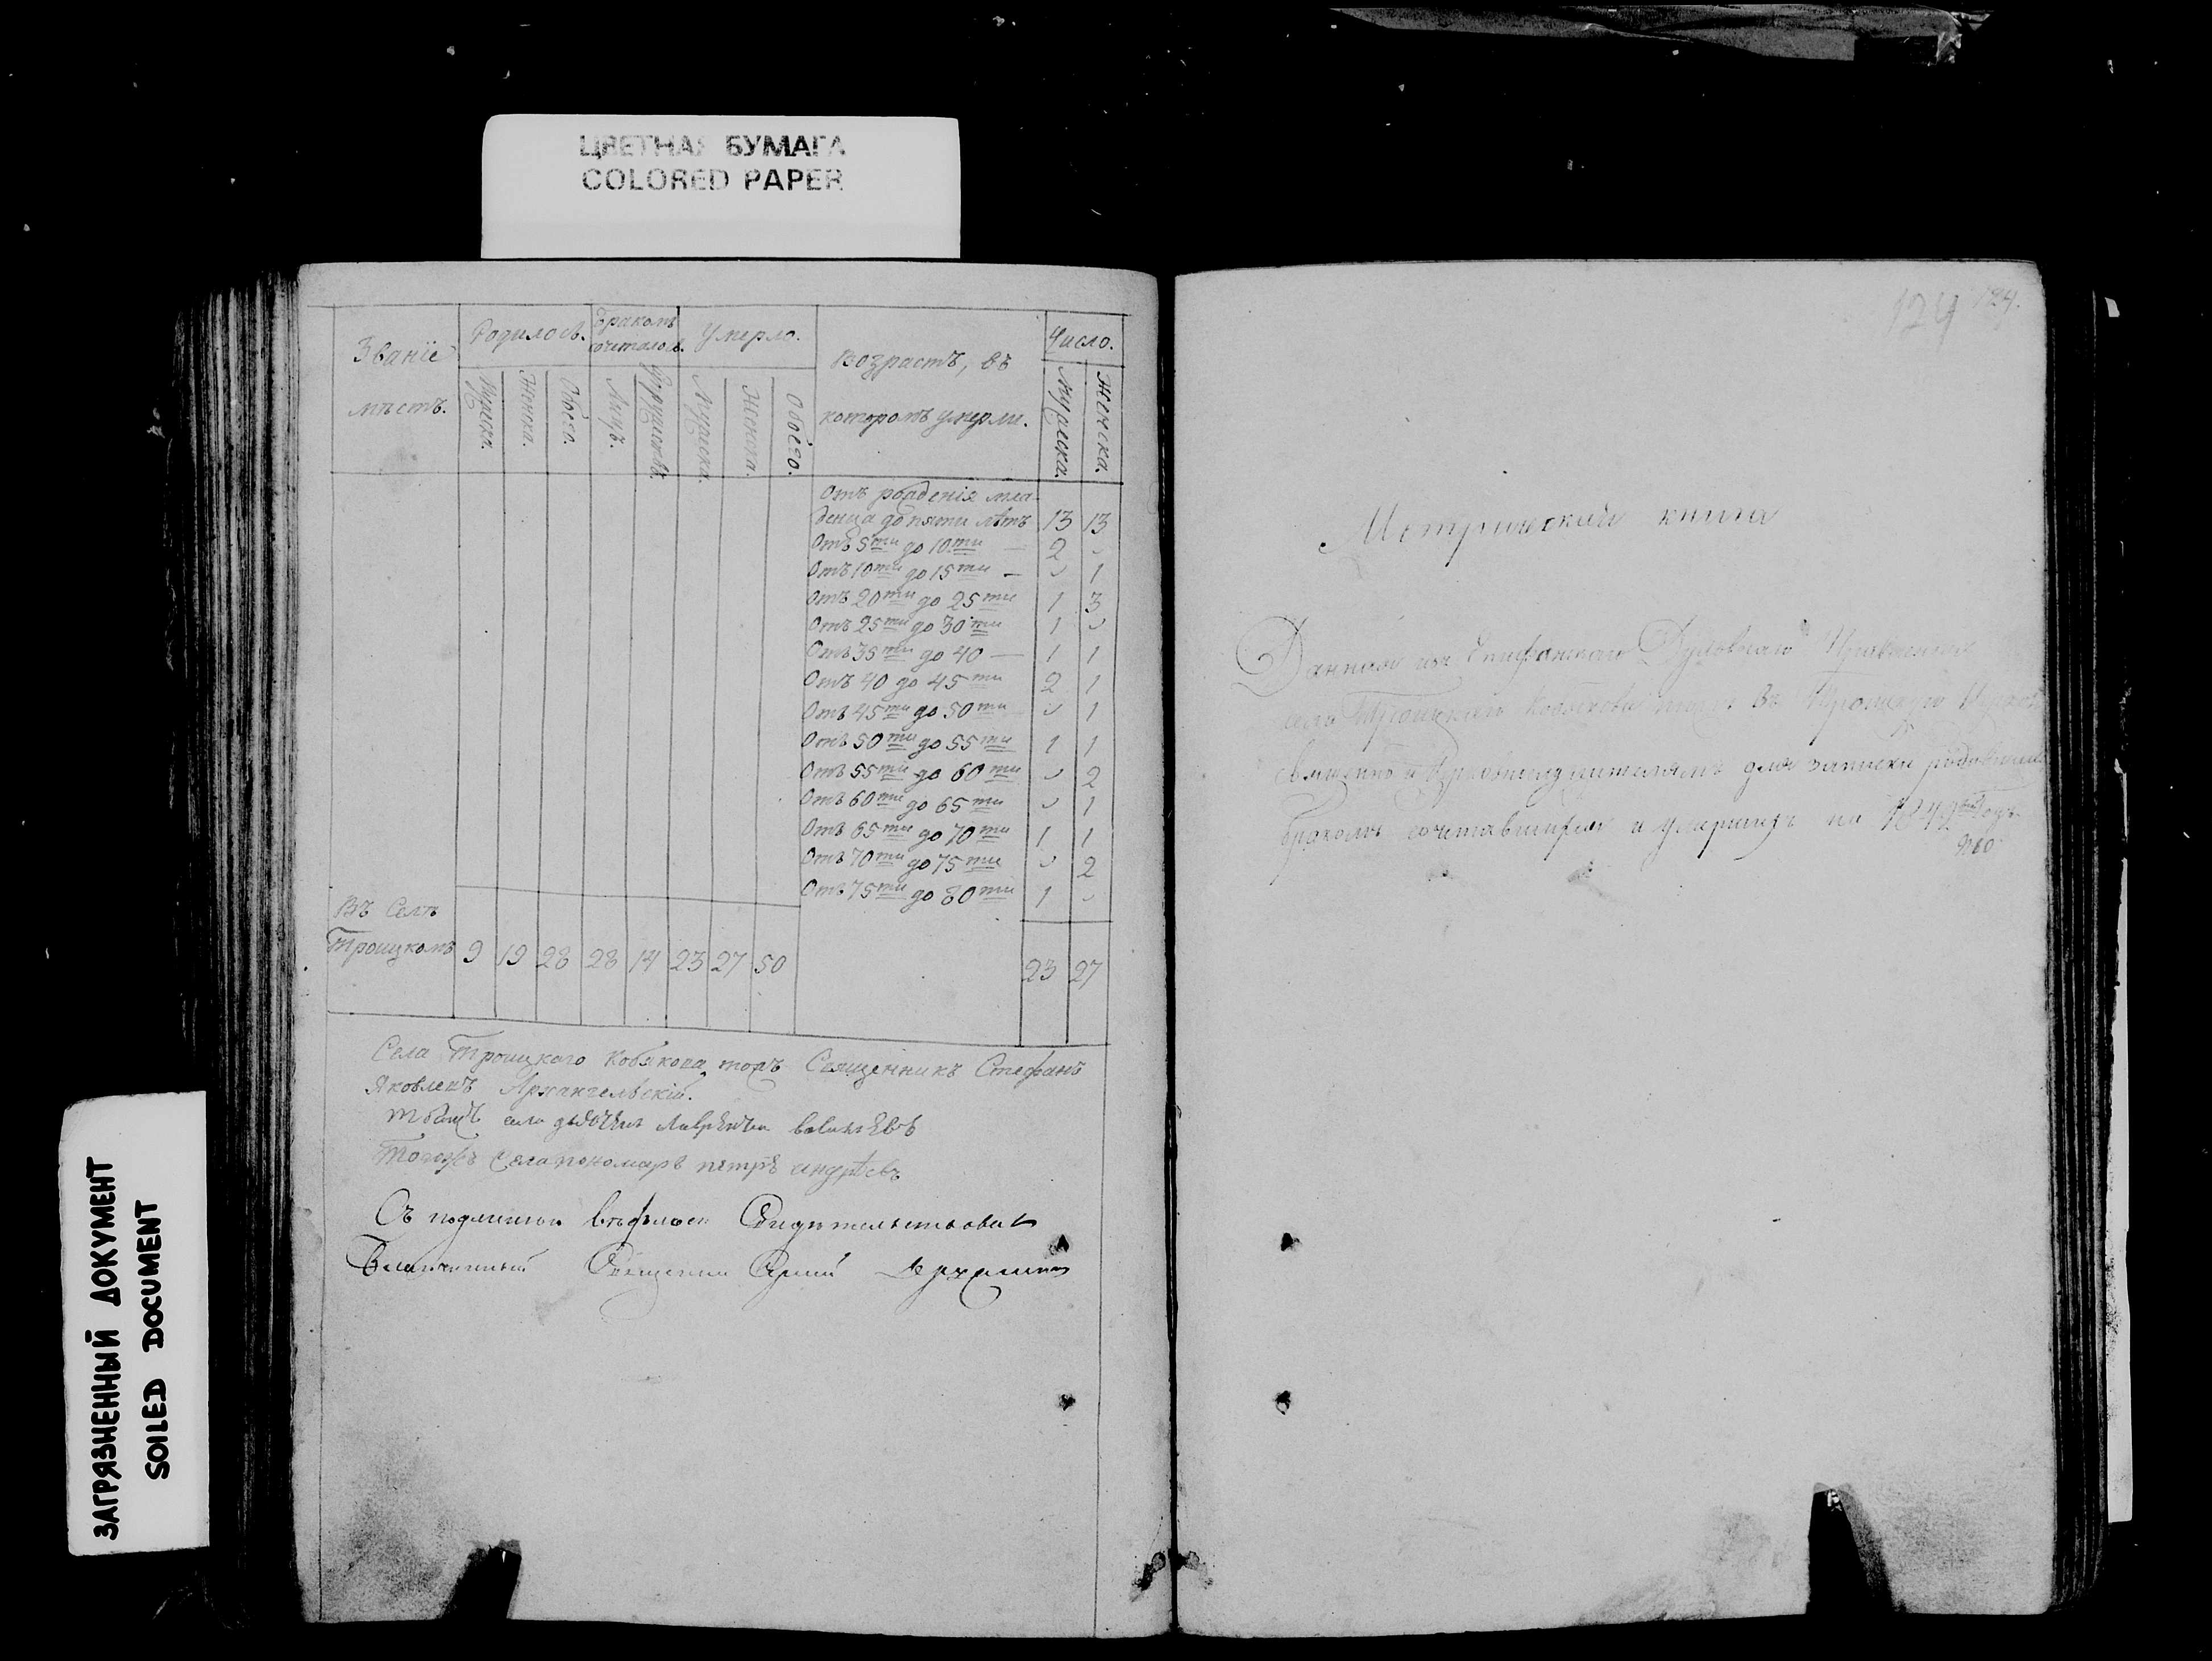 ЦВЕТНАЯ БУМАГА
COLORED PAPER
ЗАГРЯЗНЕННЫЙ ДОКУМЕНТ
SOILED DOCUMENT
Званіе мѣстъ.
Родилось.
Бракомъ сочеталось.
Умерло.
Возрастъ, въ которомъ умерли.
Число.
Мужеска.
Женска.
Обоего.
Лицъ.
Супружествъ.
Мужеска.
Женска.
Обоего.
Мужеска.
Женска.
Отъ рожденія мла-
денца до пяти лѣтъ 13 13
Отъ 5ти до 10ти — 2 ᴗ
Отъ 10ти до 15ти — ᴗ 1
Отъ 20ти до 25ти 1 3
Отъ 25ти до 30ти 1 ᴗ
Отъ 35ти до 40 — 1 1
Отъ 40 до 45ти 2 1
Отъ 45ти до 50ти ᴗ 1
Отъ 50ти до 55ти 1 1
Отъ 55ти до 60ти ᴗ 2
Отъ 60ти до 65ти ᴗ 1
Отъ 65ти до 70ти 1 1
Отъ 70ти до 75ти ᴗ 2
Отъ 75ти до 80ти 1 ᴗ
Въ Селѣ
Троицкомъ 9 19 28 28 14 23 27 50 23 27
Села Троицкаго Кобякова тожъ Священникъ Стефанъ
Яковлевъ Архангельскій.
села
Тогожъ села пономарь петръ андрѣевъ
Съ подлиннои
Благочинный Священникъ
124 124.
Метрическая книга
Данная изъ Епифанскаго Духовнаго Правленія
села Троицкаго Кобякова тожъ въ Троицкую Церковь
священно и Церковнослужителямъ для записки родившихся
бракомъ сочетавшихся и умершихъ на 1842й годъ.